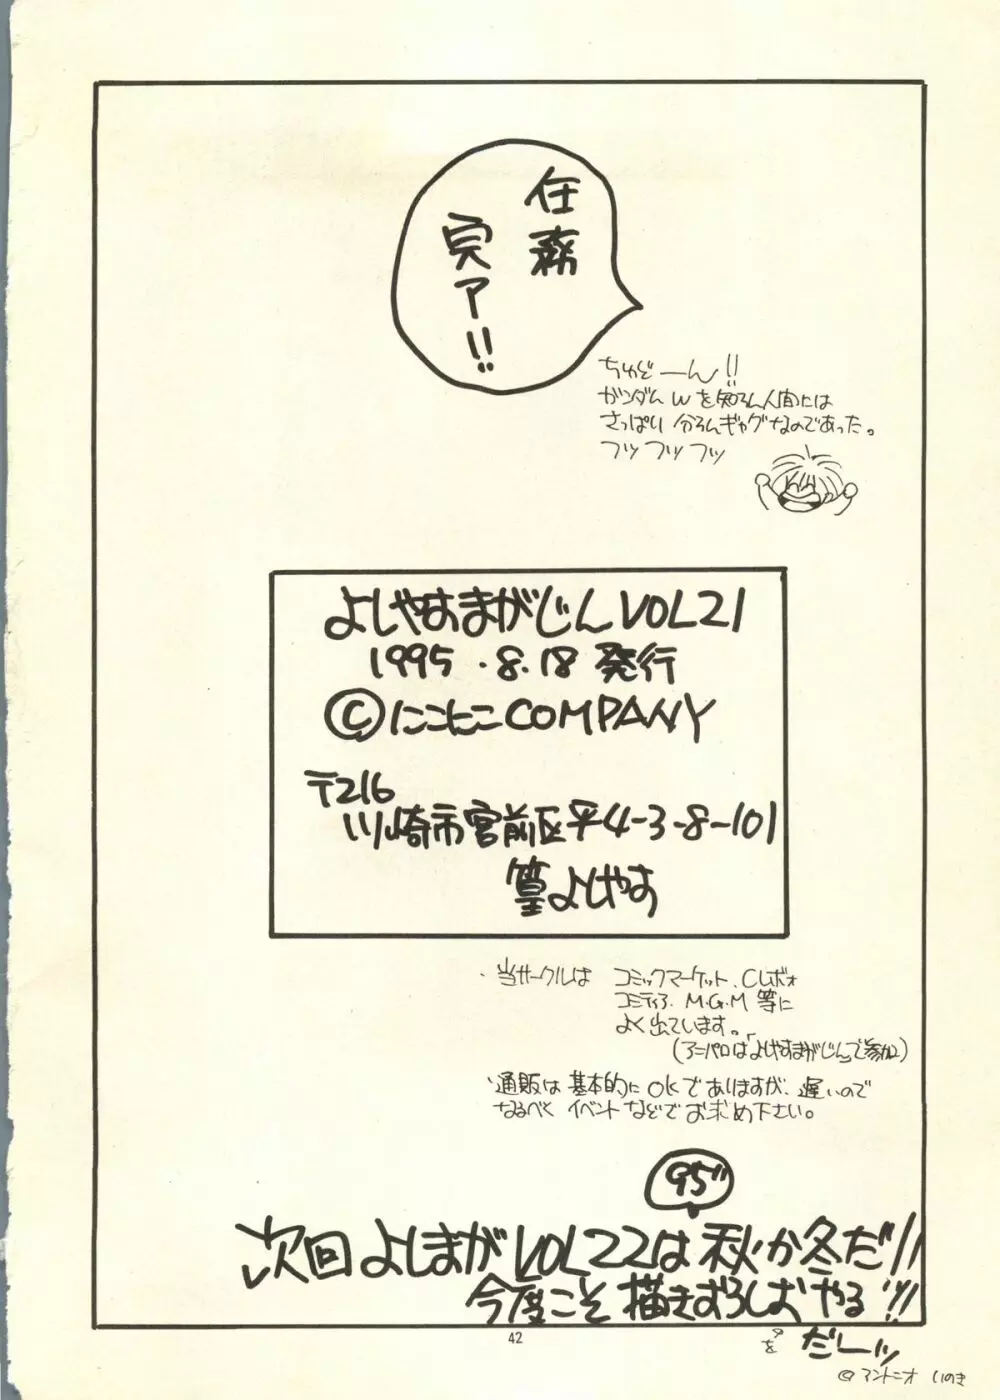 任務
完了!!
ちゅどーん!!
ガンダムWを知らん人間には
さっぱり分らんギャグなのであった。
フッフッフッ
よしやすまがじんVOL21
1995.8.18発行
©にこにこCOMPANY
〒216
川崎市宮前区平4-3-8-101
篁よしやす
・当サークルは コミックマーケット、Cレボォ
コミティア、M.G.M 等に
よく出ています。
(アニパロは「よしやすまがじん」で参加)
・通販は基本的にOKでありますが、遅いので
なるべくイベントなどでお求め下さい。
95"
次回よしまがVOL22は秋か冬だ!!
今度こそ描きおろしおやる!!!
を
だーッ
42
©アントニオ いのき